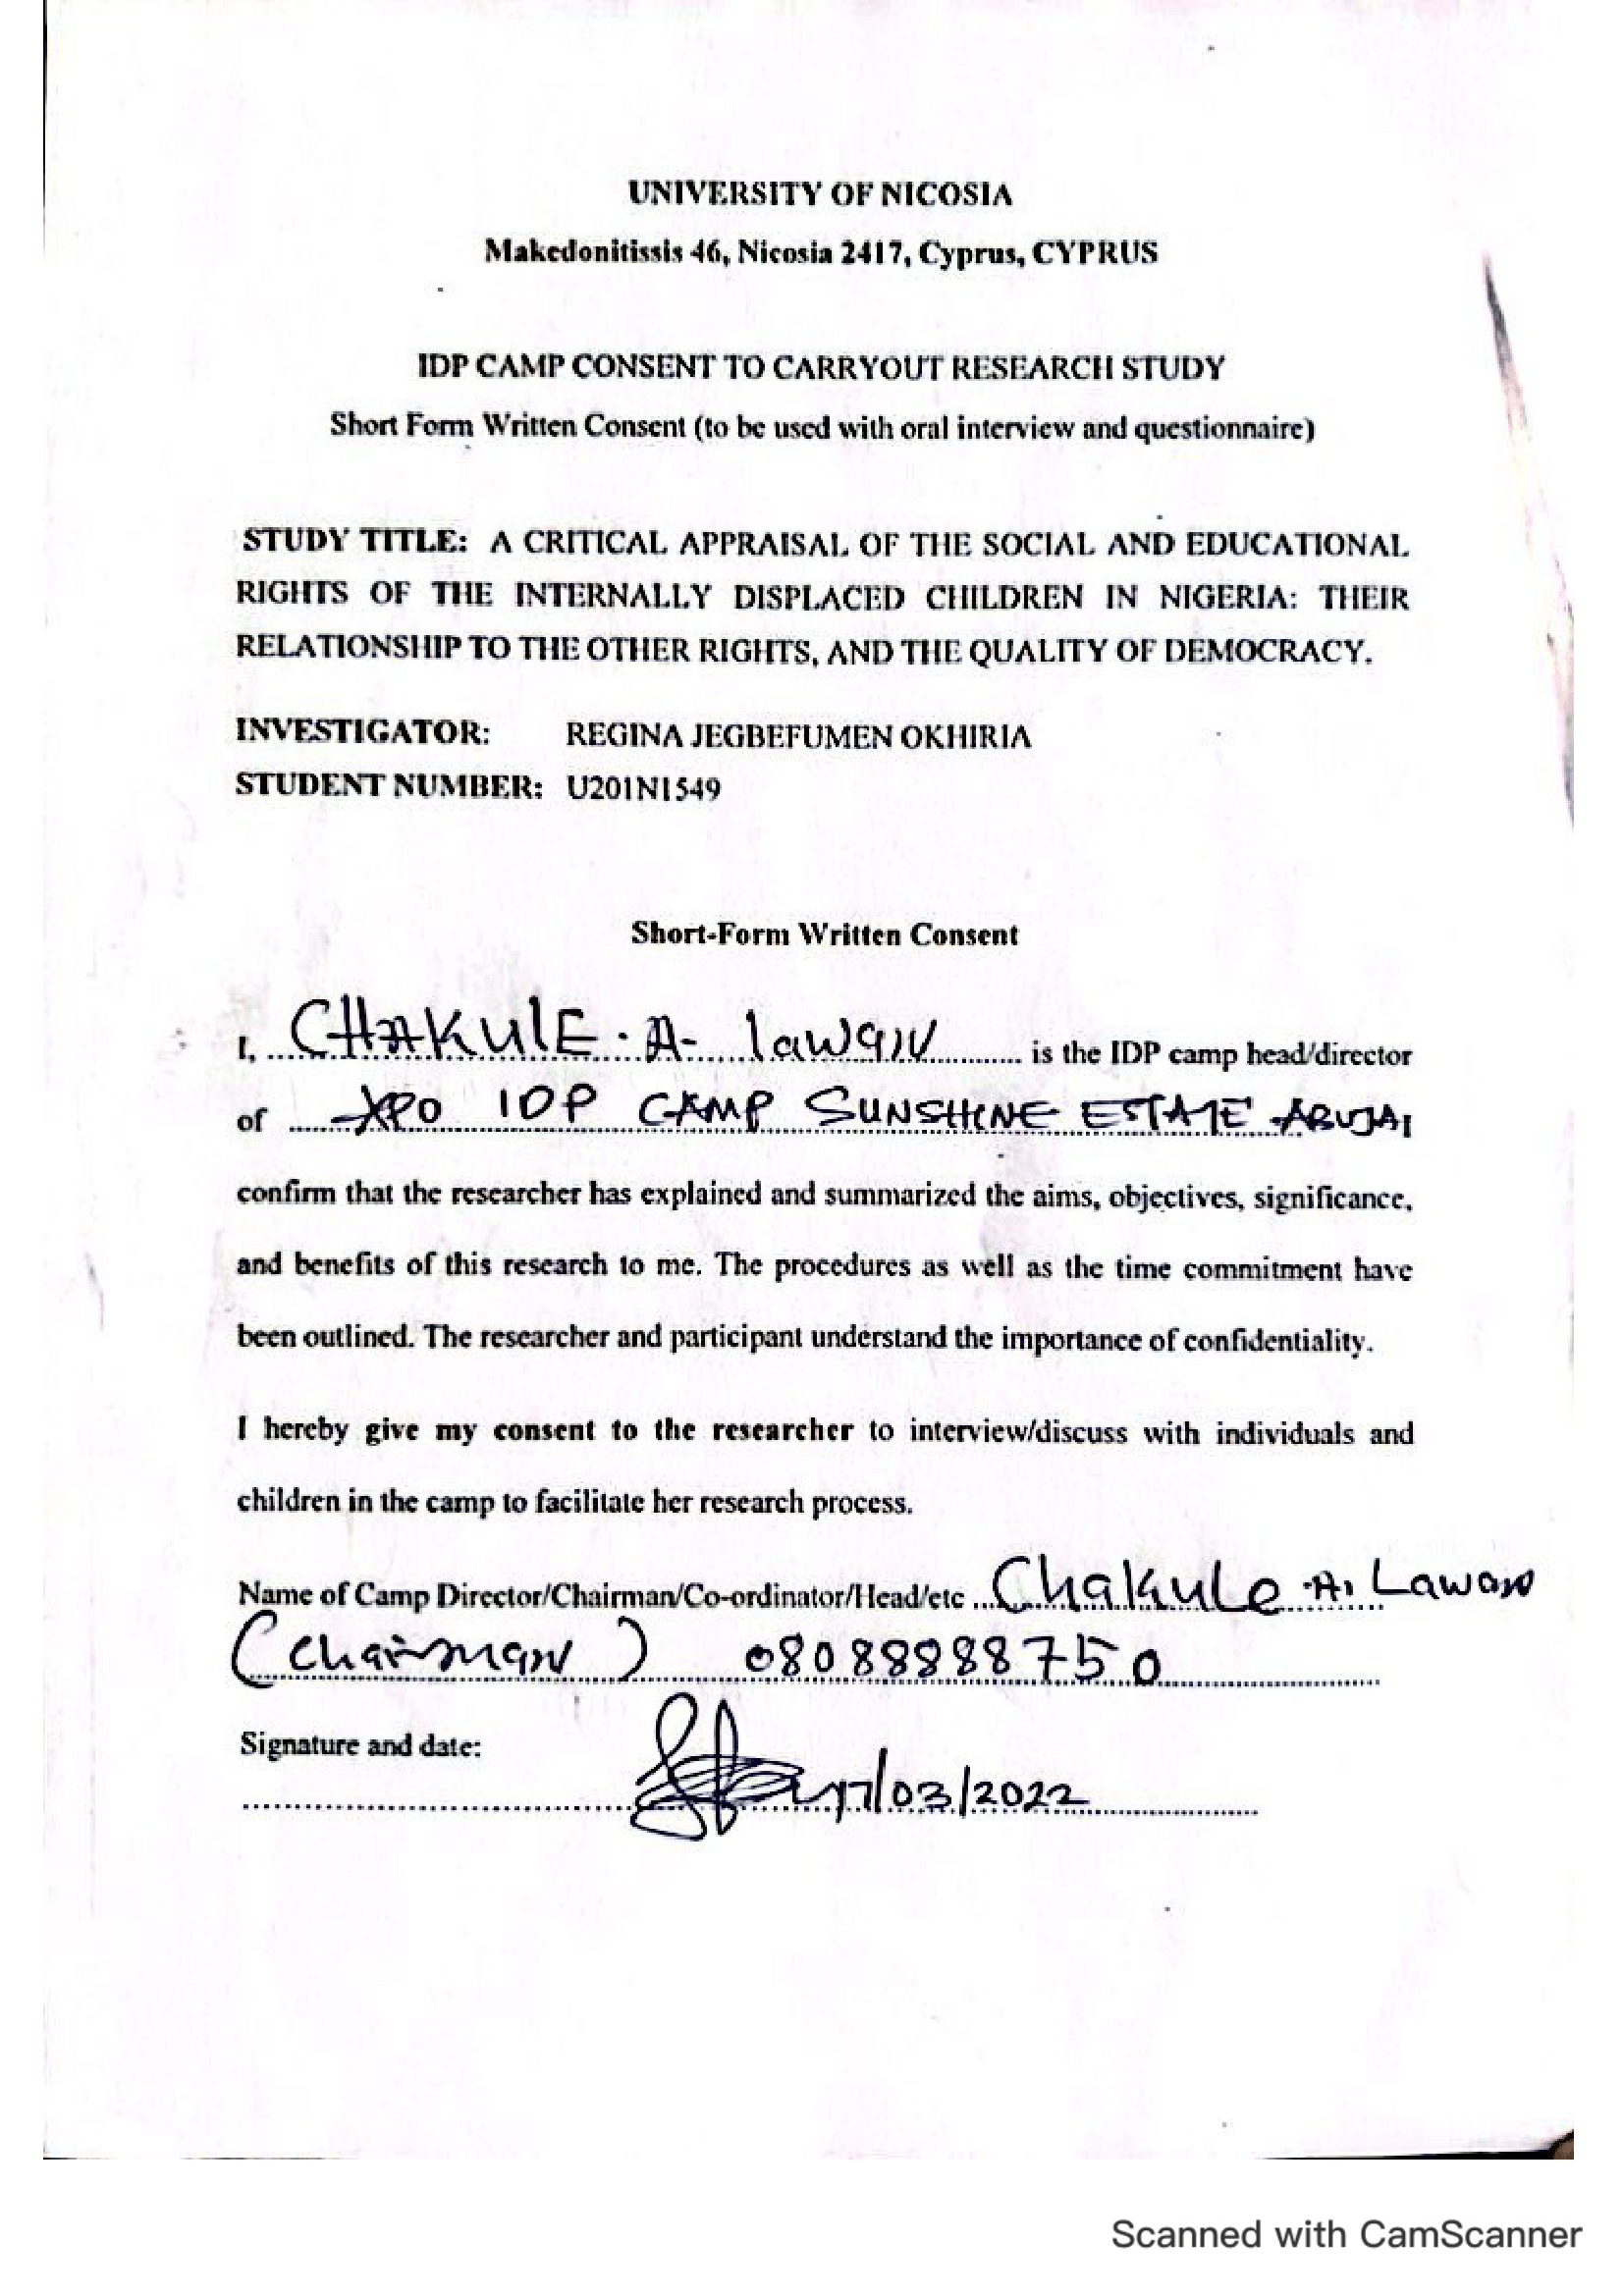 UNIVERSITY OF NICOSIA
Makedonitissis 46, Nicosia 2417, Cyprus, CYPRUS
IDP CAMP CONSENT TO CARRYOUT RESEARCH STUDY
Short Form Written Consent (to be used with oral interview and questionnaire)
STUDY TITLE: A CRITICAL APPRAISAL OF THE SOCIAL AND EDUCATIONAL
RIGHTS OF THE INTERNALLY DISPLACED CHILDREN IN NIGERIA: THEIR
RELATIONSHIP TO THE OTHER RIGHTS, AND THE QUALITY OF DEMOCRACY.
INVESTIGATOR: REGINA JEGBEFUMEN OKHIRIA
STUDENT NUMBER: U201N1549
Short-Form Written Consent
I, CHAKULE. A. lawan is the IDP camp head/director
of IDP CAMP SUNSHINE ESTATE ABUJA,
confirm that the researcher has explained and summarized the aims, objectives, significance,
and benefits of this research to me. The procedures as well as the time commitment have
been outlined. The researcher and participant understand the importance of confidentiality.
I hereby give my consent to the researcher to interview/discuss with individuals and
children in the camp to facilitate her research process.
Name of Camp Director/Chairman/Co-ordinator/Head/etc Chakule A. Lawan
(Chairman) 08088888750
Signature and date:
17/03/2022
Scanned with CamScanner